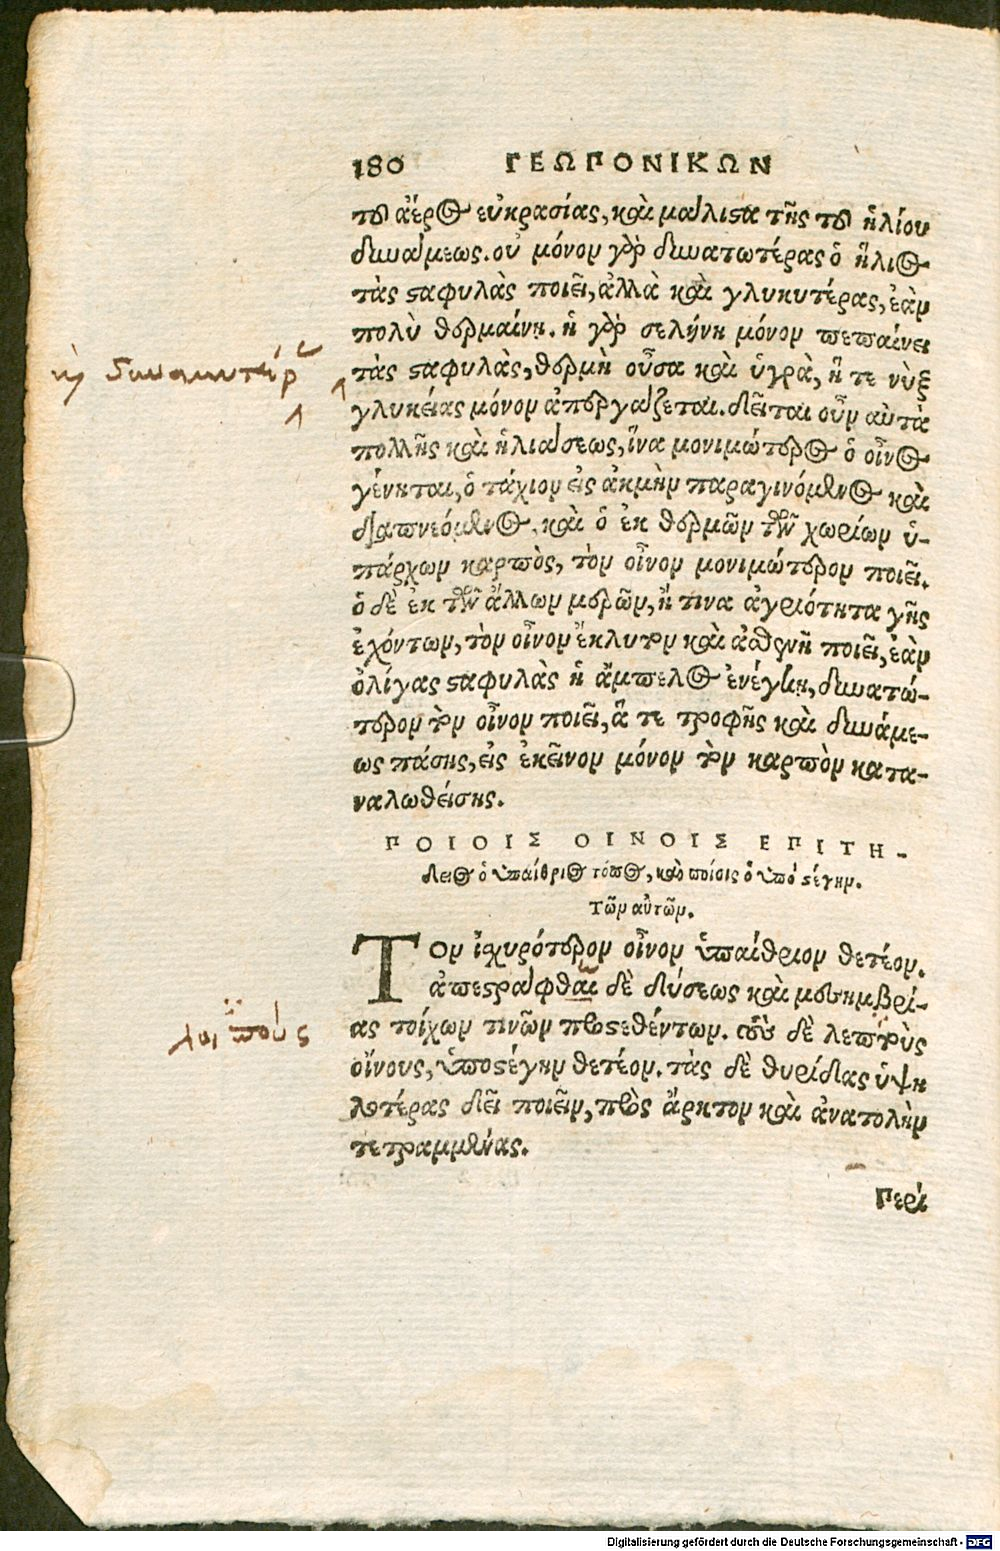 180 ΓΕΩΠΟΝΙΚΩΝ
τοῦ ἀέρος εὐκρασίας, καὶ μάλιστα τῆς τοῦ ἡλίου
δυνάμεως. οὐ μόνον γὰρ δυνατωτέρας ὁ ἥλιος
τὰς σταφυλὰς ποιεῖ, ἀλλὰ καὶ γλυκυτέρας, ἐὰν
πολὺ θερμαίνῃ. ἡ γὰρ σελήνη μόνον πεπαίνει
τὰς σταφυλὰς, θερμὴ οὖσα καὶ ὑγρὰ, ἥ τε νὺξ
γλυκείας μόνον ἀπεργάζεται. δεῖται οὖν αὐτὰ
πολλῆς καὶ ἡλιάσεως, ἵνα μονιμώτερος ὁ οἶνος
γένηται, ὁ τάχιον εἰς ἀκμὴν παραγινόμενος καὶ
διαπνεόμενος, καὶ ὁ ἐκ θερμῶν τῶν χωρίων ὑ-
πάρχων καρπὸς, τὸν οἶνον μονιμώτερον ποιεῖ.
ὁ δὲ ἐκ τῶν ἄλλων μερῶν, ἤ τινα ἀγριότητα γῆς
ἐχόντων, τὸν οἶνον ἔκλυτον καὶ ἀσθενῆ ποιεῖ, ἐὰν
ὀλίγας σταφυλὰς ἡ ἄμπελος ἐνέγκῃ, δυνατώ-
τερον τὸν οἶνον ποιεῖ, ἅ τε τροφῆς καὶ δυνάμε-
ως πάσης, εἰς ἐκεῖνον μόνον τὸν καρπὸν κατα-
ναλωθείσης.
ΠΟΙΟΙΣ ΟΙΝΟΙΣ ΕΠΙΤΗ-
δειος ὁ ὑπαίθριος τόπος, καὶ ποίοις ὁ ὑπὸ στέγην.
Τῶν αὐτῶν.
ΤΟν ἰσχυρότερον οἶνον ὑπαίθριον θετέον.
ἀπεστράφθαι δὲ δύσεως καὶ μεσημβρί-
λοιποὺς
ας τοίχων τινῶν προστεθέντων. τοὺς δὲ λεπτοὺς
οἴνους, ὑποστέγην θετέον. τὰς δὲ θυρίδας ὑψη
λοτέρας δεῖ ποιεῖν, πρὸς ἄρκτον καὶ ἀνατολὴν
τετραμμένας.
Περὶ
Digitalisierung gefördert durch die Deutsche Forschungsgemeinschaft - DFG